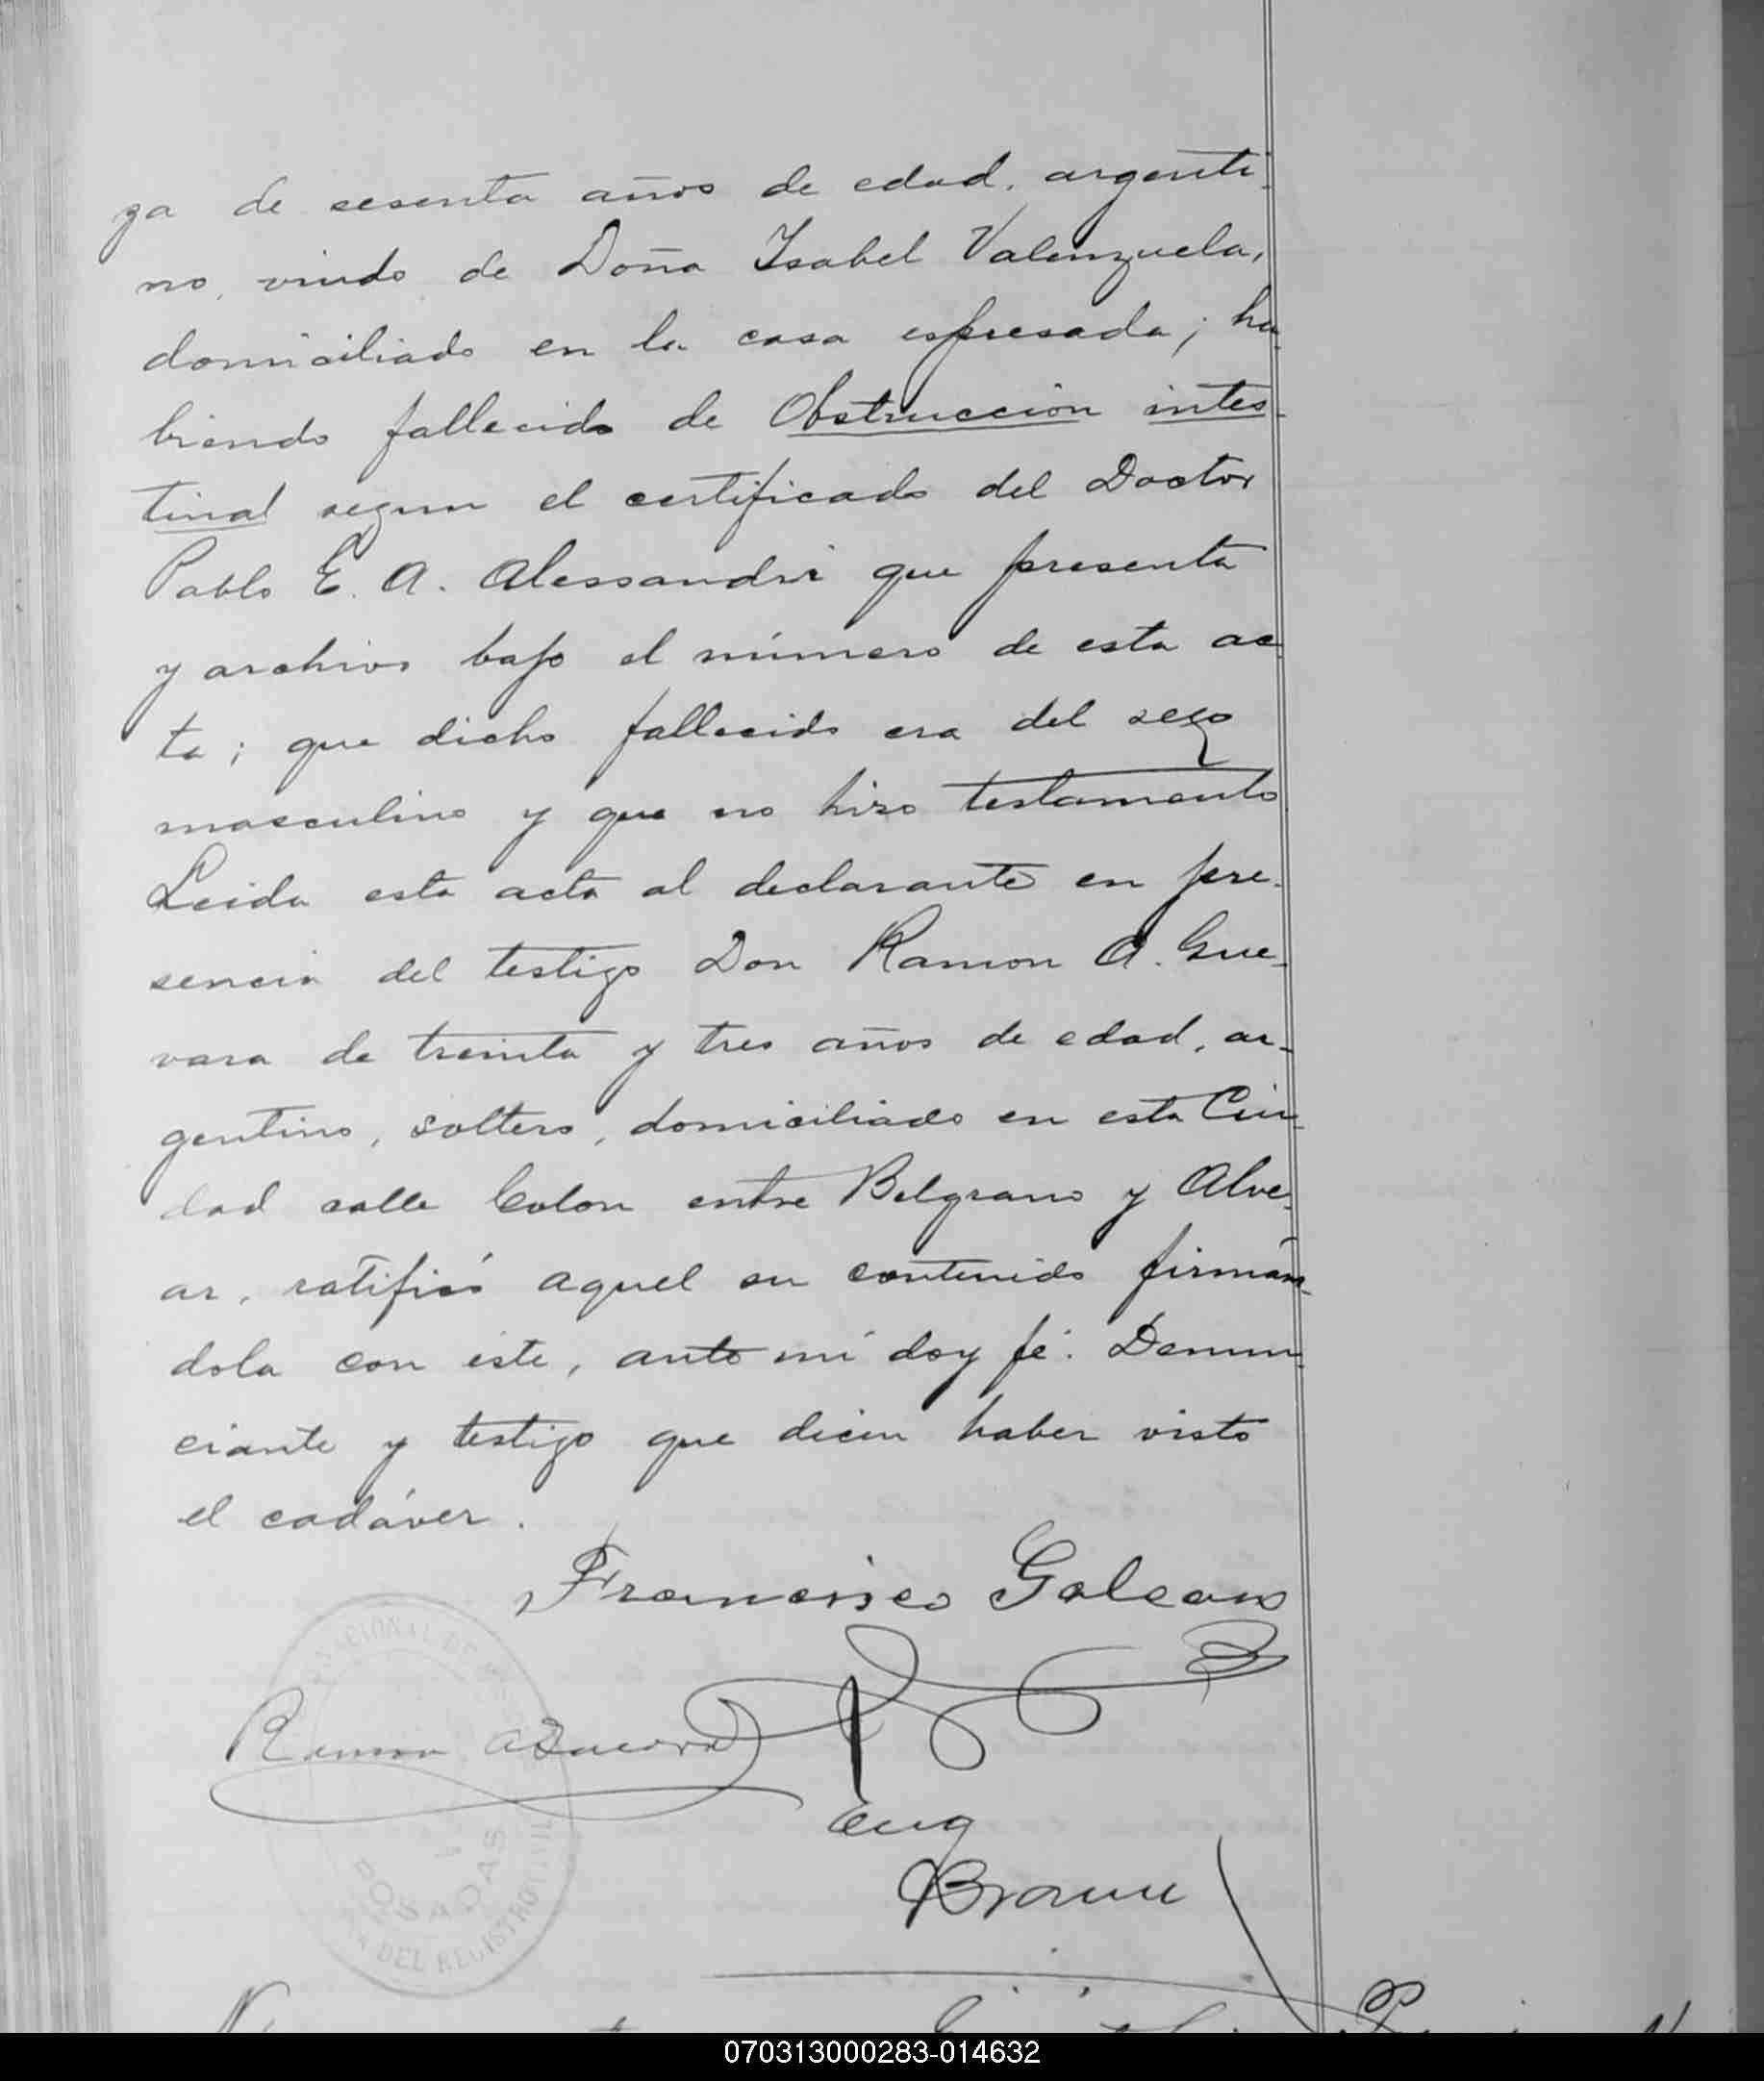 za de sesenta años de edad, argenti-
no, viudo de Doña Isabel Valenzuela,
domiciliado en la casa espresada; ha-
biendo fallecido de Obstruccion intes-
tinal segun el certificado del Doctor
Pablo E. A. Alessandri que presenta
y archivo bajo el número de esta ac-
ta; que dicho fallecido era del sexo
masculino y que no hizo testamento
Leida esta acta al declarante en pre-
sencia del testigo Don Ramon A. Gue-
vara de treinta y tres años de edad, ar-
gentino, soltero, domiciliado en esta Ciu-
dad calle Colon entre Belgrano y Alve-
ar, ratificó aquel su contenido firmán-
dola con éste, ante mí doy fé. Denun-
ciante y testigo que dicen haber visto
el cadáver.
Francisco Galeano
Ramon A Guevara
Eug
Braun
NACIONAL DE
POSADAS
DEL REGISTRO CIVIL
070313000283-014632